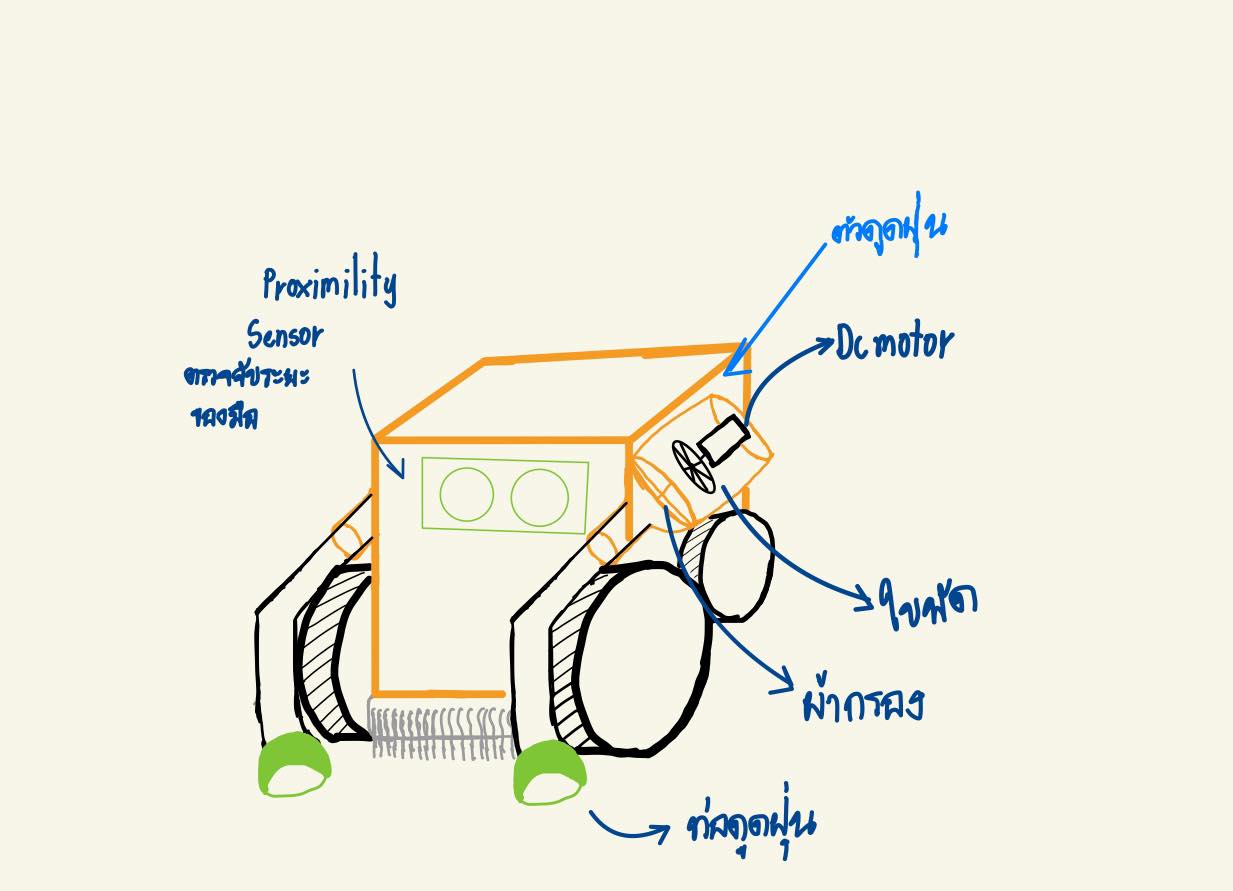 ตัวดูดฝุ่น
Proximility
Sensor
ตรวจจับระยะ
ของมือ
Dc motor
ใบพัด
ผ้ากรอง
ท่อดูดฝุ่น